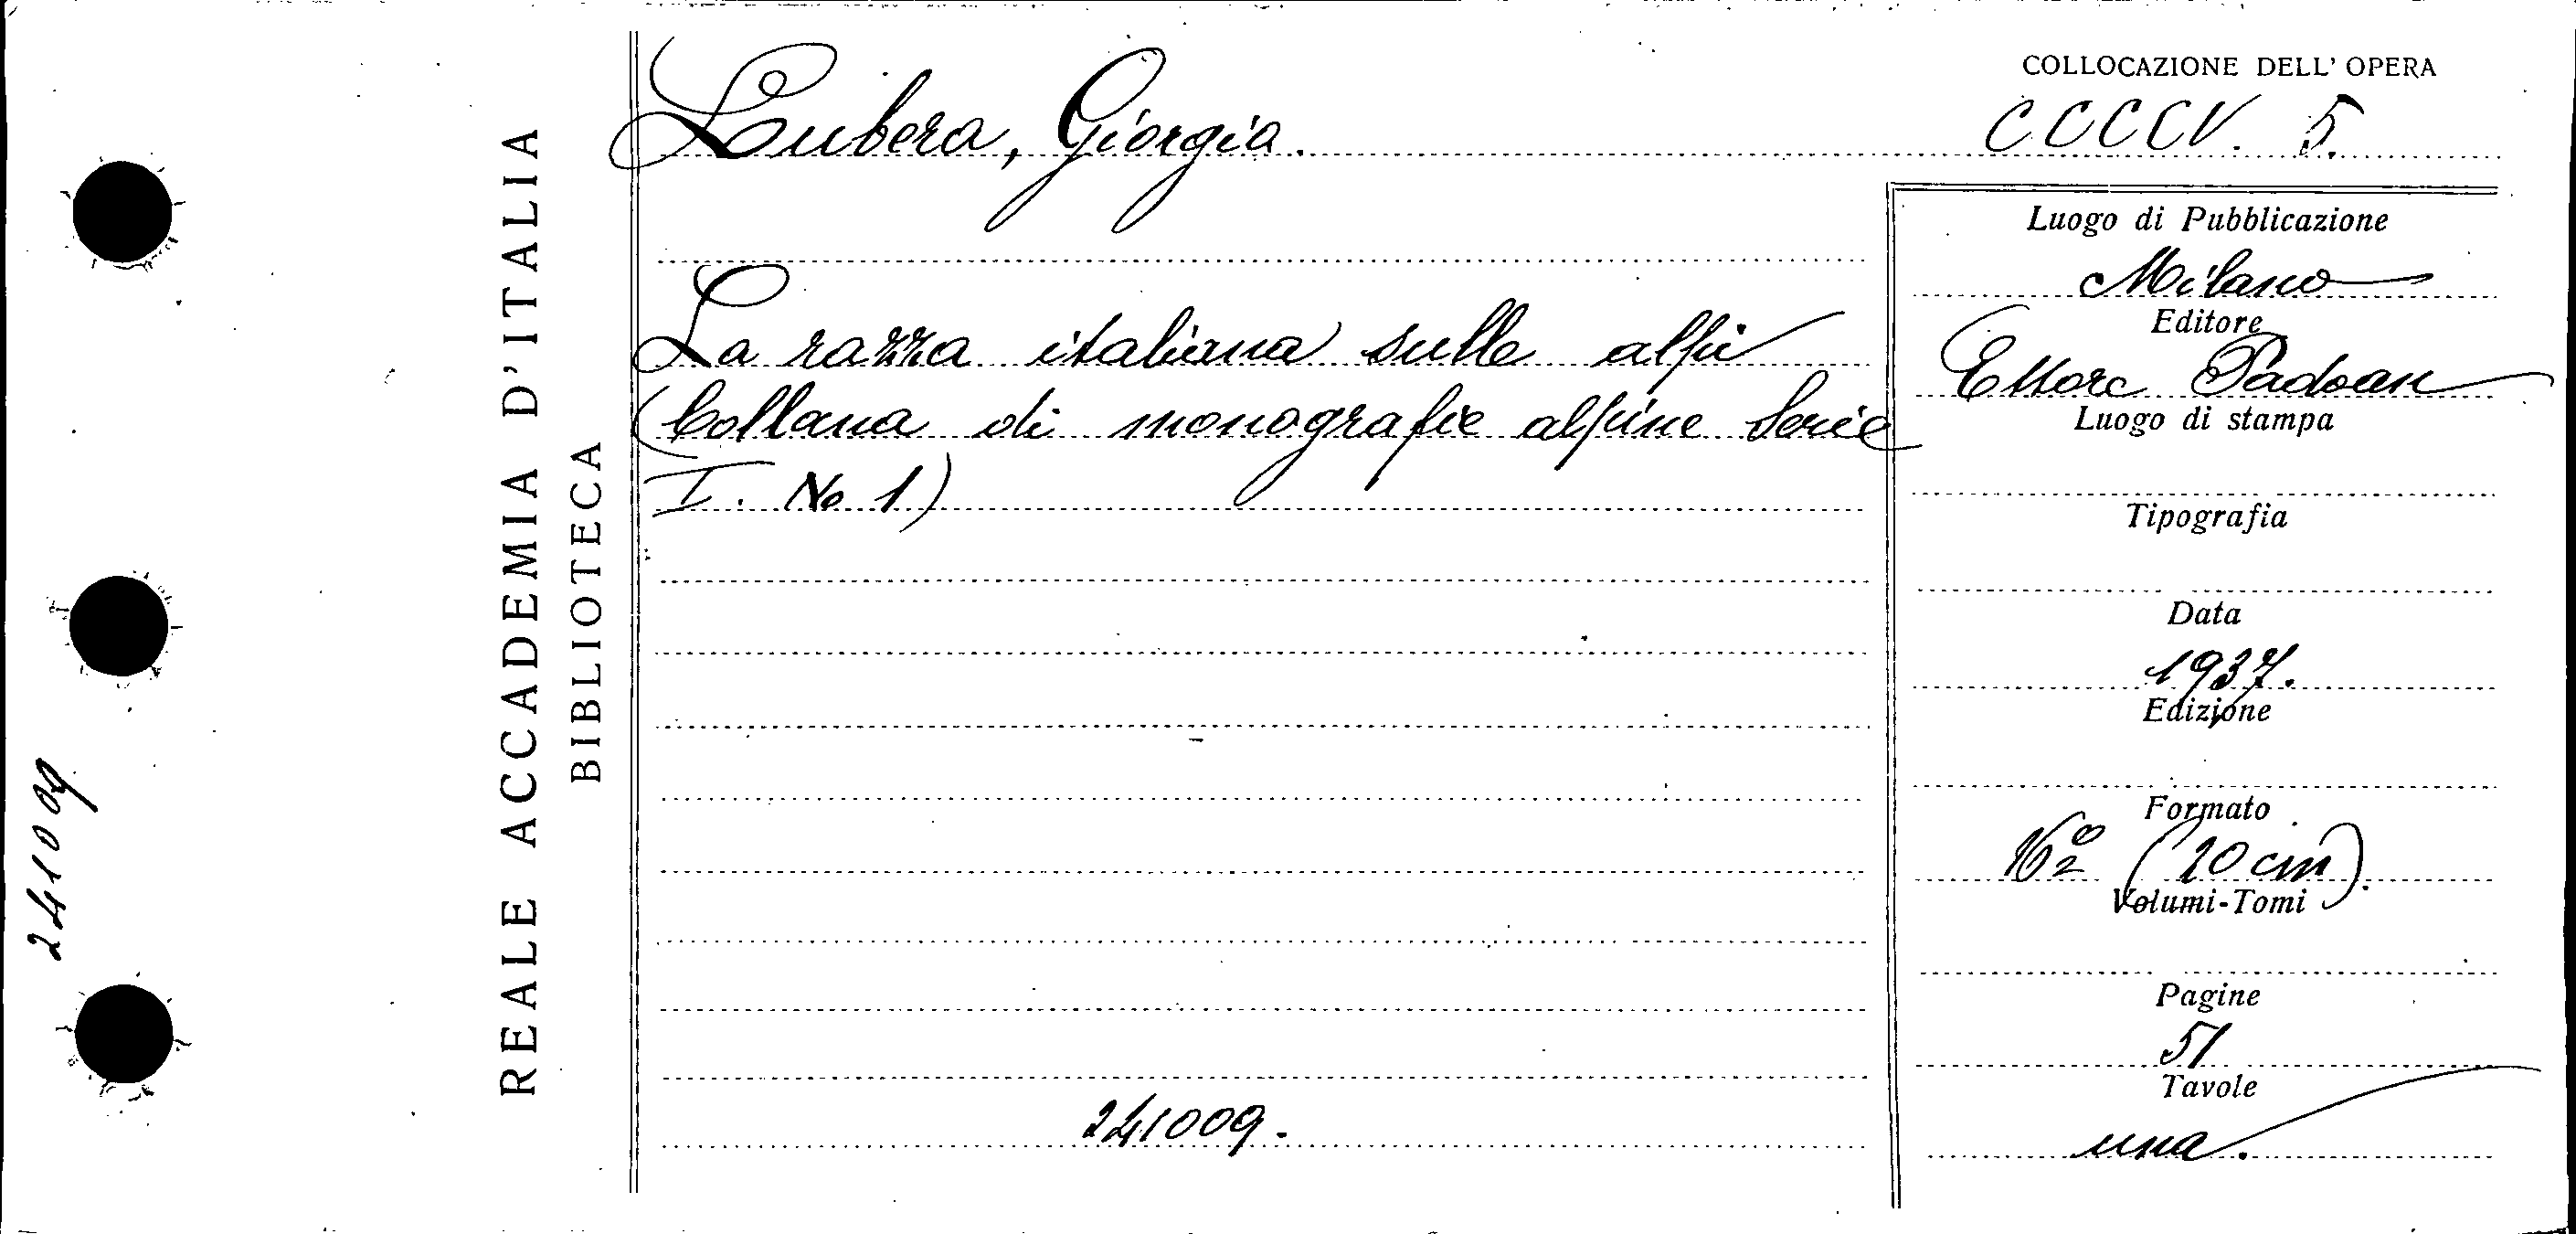 COLLOCAZIONE DELL' OPERA
Lubera, Giorgia.
CCCCV. 5.
REALE ACCADEMIA D'ITALIA
BIBLIOTECA
241009
La razza italiana sulle alpi
(Collana di monografie alpine Serie
I. No 1)
241009.
Luogo di Pubblicazione
Milano
Editore
Ettore Padoan
Luogo di stampa
Tipografia
Data
1937.
Edizione
Formato
16º (20 cm).
Volumi-Tomi
Pagine
51
Tavole
una.